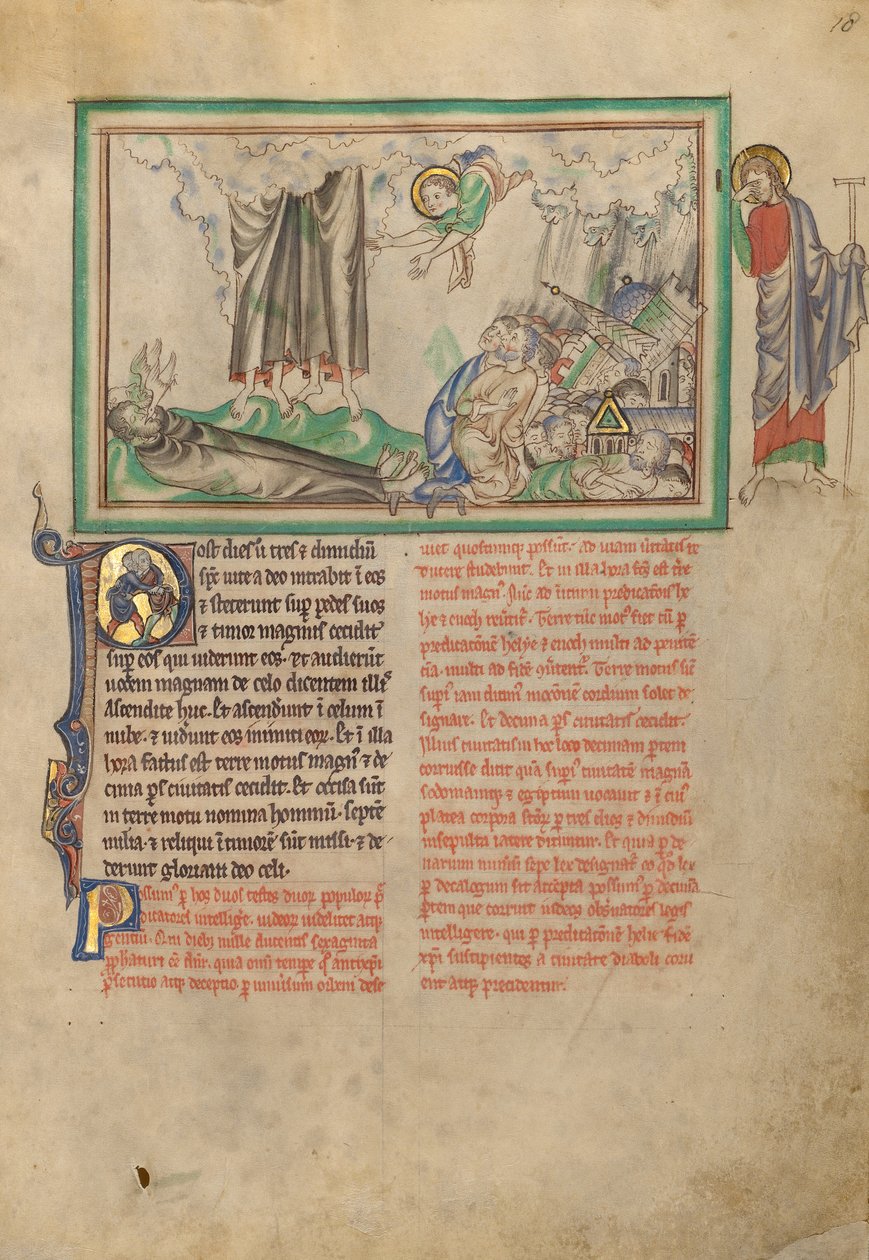 18
Post dies u tres & dimidiũ
spc uite a deo intrabit ĩ eos
& steterunt sup pedes suos
& timor magnus cecidit
super eos qui uiderunt eos. et audierũt
uocem magnam de celo dicentem illis
Ascendite huc. Et ascendunt ĩ celum ĩ
nube. & uidunt eos inimici eoꝝ. Et ĩ illa
hora factus est terre motus magnꝰ & de
cima ps ciuitatis cecidit. Et occisa sũt
in terre motu nomina hominũ. septẽ
milia. & reliqui ĩ timorẽ sũt missi. & de
derunt gloriam deo celi.
Possumꝰ p hos duos testes duoꝝ populoꝝ p̃
dicatores intellige. iudeoꝝ uidelicet atq;
gentiũ. Qui dieb; mille ducentis sexaginta
pphaturi cẽ dnr. quia omi tempe antixpi
psecutio atq; deceptio p uniuersum orbem dese
uiet quoscumq; possũt. ad uiam ueritatis re
ducere studebunt. Et in illa hora fcs est tr̃e
motus magnꝰ. Tũc ad ĩtium predicatõis he
lye & enoch reũtit. Terre tũc motꝰ fiet cũ p
predicatõnem helye & enoch multi ad penitẽ
ciã. multi ad fidẽ ꝯũtent. Terre motus siẽ
supiꝰ iam diximꝰ mocionẽ cordium solet de
signare. Et decima ps ciuitatis cecidit.
Illius ciuitatis in hoc loco decimam partem
corruisse dicit quã supiꝰ ciuitatẽ magnã
sodomamq; & egiptum uocauit & ĩ cuiꝰ
platea corpora sc̃oꝝ p tres dies & dimidiũ
insepulta iacere dicuntur. Et quia p de
narium numm̃ sepe lex designat᷑ eo qd lex
p decalogum sit accepta possumꝰ p decimã
ptem que corruit iudeos obsuatores legis
intelligere. qui p predicatõnem helie fidẽ
xpi suscipientes a ciuitate diaboli corru
ent atq; precidentur.